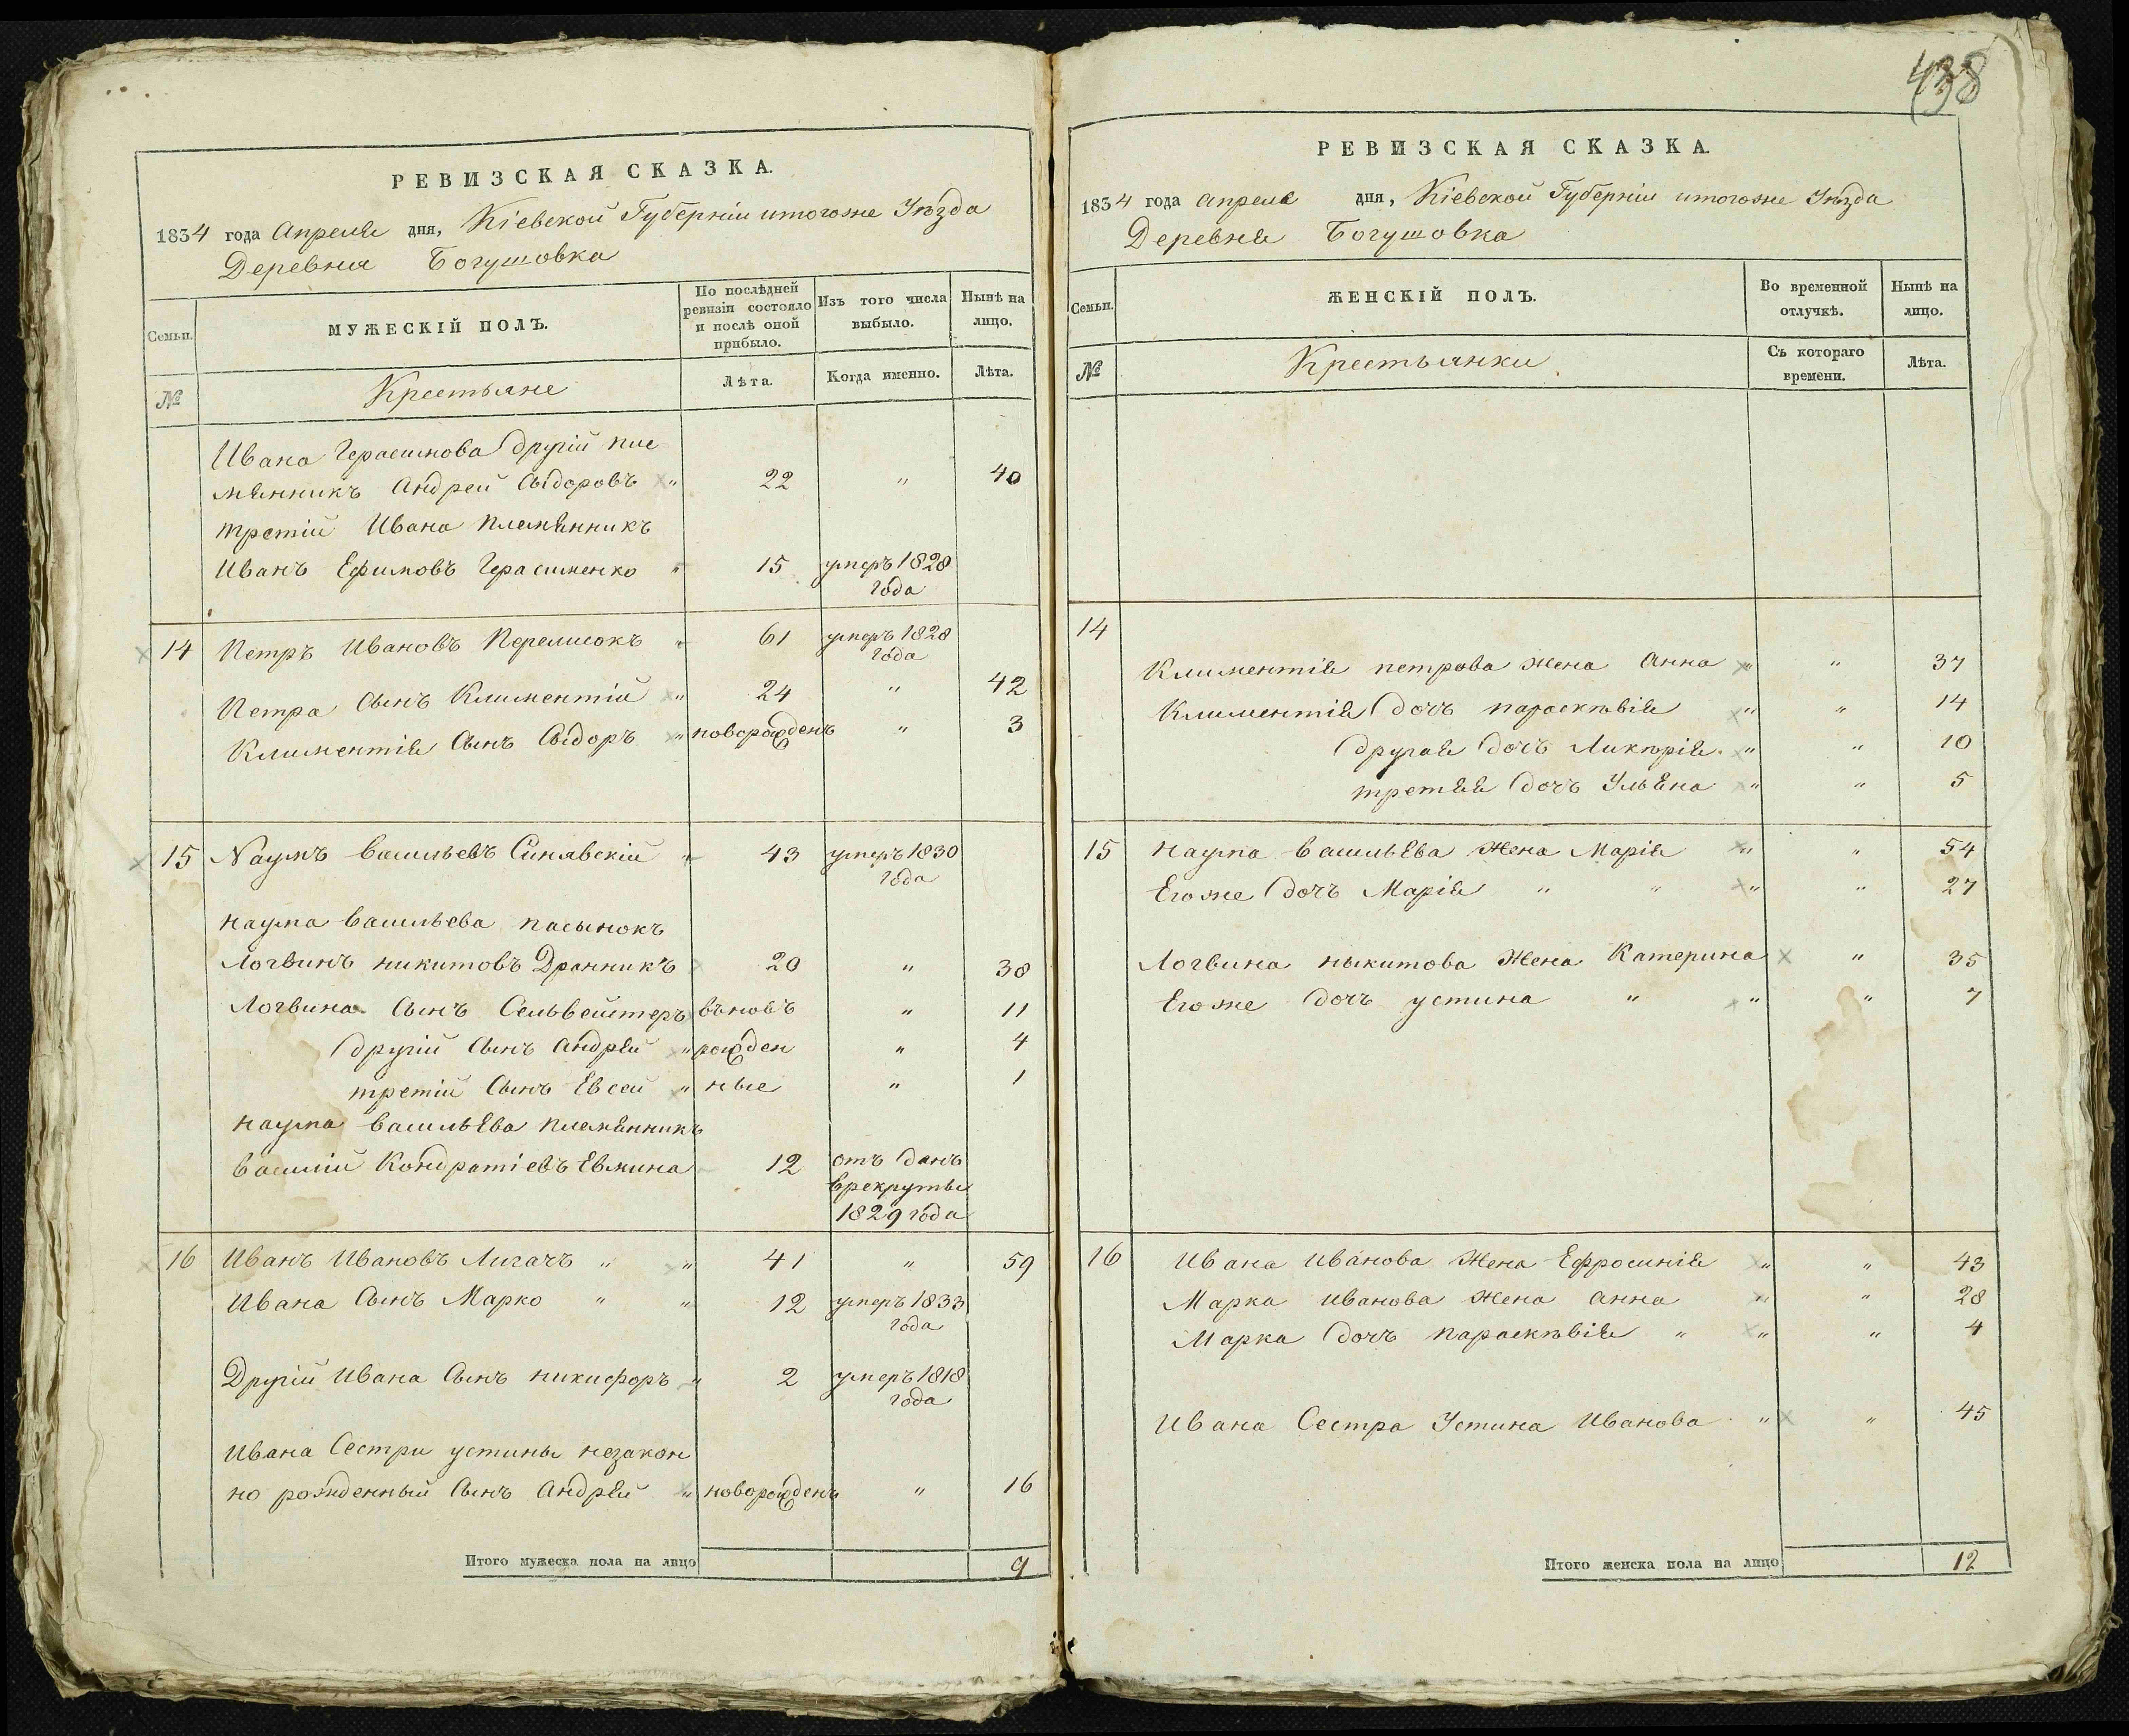 438
РЕВИЗСКАЯ СКАЗКА.
1834 года Апреля дня, Кіевской Губерніи итогоже Уѣзда
Деревня Богушовка
Семьи. МУЖЕСКІЙ ПОЛЪ. По послѣдней ревизіи состояло и послѣ оной прибыло. Изъ того числа выбыло. Нынѣ на лицо.
№ Крестьяне Лѣта. Когда именно. Лѣта.
Ивана Герасимова другій пле
мянникъ Андрей Сыдоровъ " 22 " 40
третій Ивана племянникъ
Иванъ Ефимовъ Герасименко " 15 умеръ 1828
года
14 Петръ Ивановъ " 61 умеръ 1828
года
Петра Сынъ Климентій " 24 " 42
Климентія Сынъ Сыдоръ " новорожденъ " 3
15 Наумъ Васильевъ Синявскій " 43 умеръ 1830
года
Наума Васильева пасынокъ
Логвинъ Никитовъ Дранникъ 20 " 38
Логвина Сынъ Сельвейтеръ вновъ " 11
другій Сынъ Андрѣй " рожден " 4
третій Сынъ Евсей " ные " 1
Наума Васильѣва племянникъ
Василій Кондратіевъ Евмина 12 отъ данъ
врекруты
1829 года
16 Иванъ Ивановъ Лигачъ " " 41 " 59
Ивана Сынъ Марко " " 12 умеръ 1833
года
Другій Ивана Сынъ Никифоръ " 2 умеръ 1818
года
Ивана Сестри Устины незакон
но рожденный Сынъ Андрѣй " новорожденъ " 16
Итого мужеска пола на лицо 9
РЕВИЗСКАЯ СКАЗКА.
1834 года Апреля дня, Кіевской Губерніи итогоже Уѣзда
Деревня Богушовка
Семьи. ЖЕНСКІЙ ПОЛЪ. Во временной отлучкѣ. Нынѣ на лицо.
№ Крестьянки Съ котораго времени. Лѣта.
14
Климентія петрова жена Анна " " 37
Климентія дочъ параскѣвія " " 14
другая дочъ Ликѣрія " " 10
третяя дочъ Ульяна " " 5
15 Наума Васильѣва жена Марія " " 54
Егоже дочъ Марія " " " " 27
Логвина Ныкитова Жена Катерина " 35
Егоже дочъ устина " " " 7
16 Ивана Иванова Жена Ефросинія " " 43
Марка Иванова жена Анна " " 28
Марка дочъ параскѣвія " " " 4
Ивана Сестра Устина Иванова " " 45
Итого женска пола на лицо 12